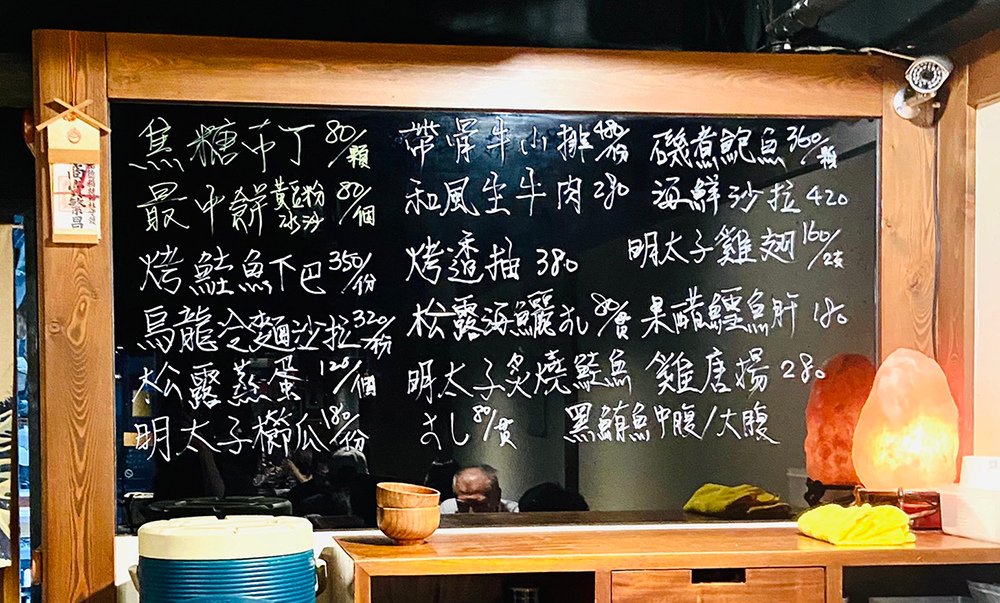 焦糖布丁 80/顆
最中餅 黃豆粉 冰沙 80/個
烤魟魚下巴 350/份
烏龍冷麵沙拉 320/份
松露蒸蛋 120/個
明太子櫛瓜 180/份
帶骨牛小排 480/份
和風生牛肉 280
烤透抽 380
松露海鱺すし 80/貫
明太子炙燒鮭魚
すし 80/貫
磯煮鮑魚 360/顆
海鮮沙拉 420
明太子雞翅 160/2支
果醋鱈魚肝 180
雞唐揚 280
黑鮪魚中腹/大腹
商売繁昌